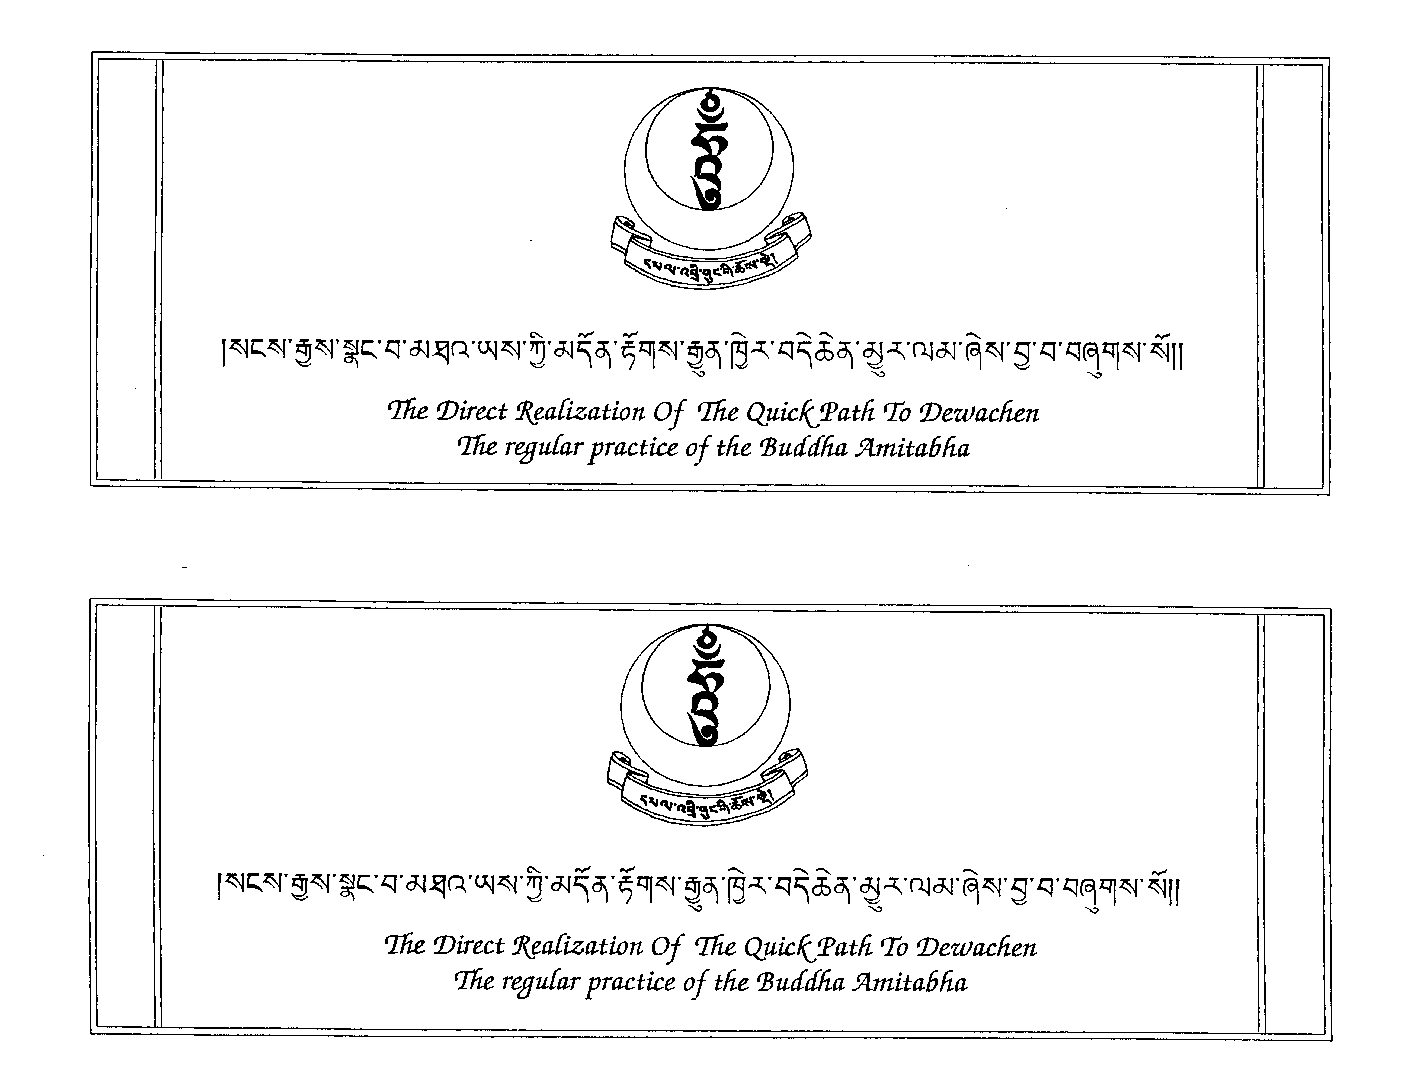 དཔལ་འབྲི་གུང་པའི་ཆོས་སྡེ།
།སངས་རྒྱས་སྣང་བ་མཐའ་ཡས་ཀྱི་མངོན་རྟོགས་རྒྱུན་ཁྱེར་བདེ་ཆེན་མྱུར་ལམ་ཞེས་བྱ་བ་བཞུགས་སོ།།
The Direct Realization Of The Quick Path To Dewachen
The regular practice of the Buddha Amitabha
།སངས་རྒྱས་སྣང་བ་མཐའ་ཡས་ཀྱི་མངོན་རྟོགས་རྒྱུན་ཁྱེར་བདེ་ཆེན་མྱུར་ལམ་ཞེས་བྱ་བ་བཞུགས་སོ།།
The Direct Realization Of The Quick Path To Dewachen
The regular practice of the Buddha Amitabha